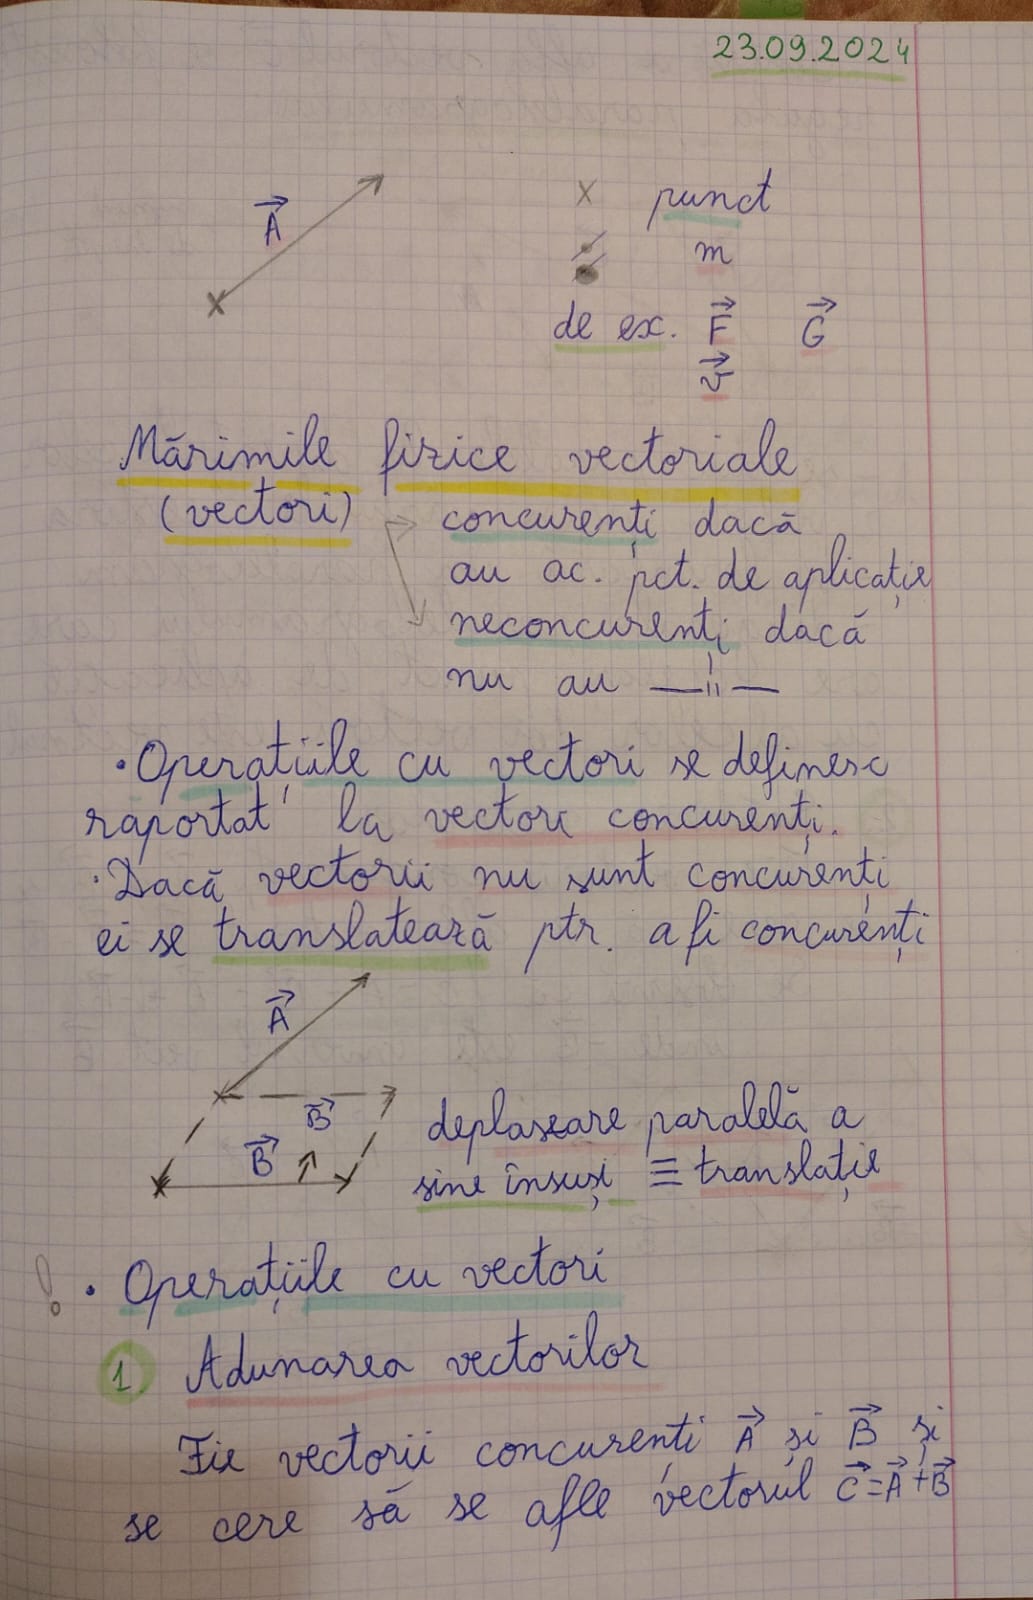 23.09.2024
A
x punct
m
de ex. F G
v
Mărimile fizice vectoriale
(vectori) concurenți dacă
au ac. pct. de aplicație
neconcurenți dacă
nu au —"—
• Operațiile cu vectori se definesc
raportat la vectori concurenți.
• Dacă vectorii nu sunt concurenți
ei se translatează ptr. a fi concurenți
A
B
B
deplasare paralelă a
sine însuși ≡ translație
! • Operațiile cu vectori
1 Adunarea vectorilor
Fie vectorii concurenți A și B și
se cere să se afle vectorul C=A+B